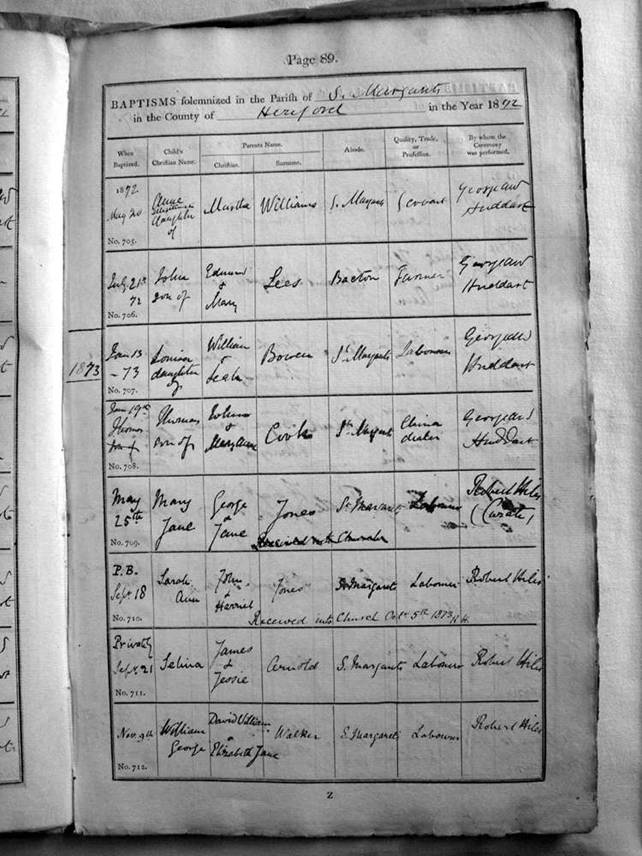 Page 89.
BAPTISMS solemnized in the Parish of S. Margarets
in the County of Hereford in the Year 1872
When Baptized. Child's Christian Name. Parents Name. Christian. Surname. Abode. Quality, Trade, or Profession. By whom the Ceremony was performed.
1872
May 20 Anne daughter of Martha Williams S. Margarets Servant George W Huddart
No. 705.
July 21st 72 John son of Edmund & Mary Lees Bacton Farmer George W Huddart
No. 706.
1873
Jan 13 -73 Louisa daughter of William & Leah Bowen St. Margarets Labourer George W Huddart
No. 707.
Jan 19th Thomas son of Thomas son of & Mary Anne Cooke St. Margarets China dealer George W Huddart
No. 708.
May 25th Mary Jane George & Jane Jones St. Margarets Labourer Robert Hiles (Curate)
Received into Church
No. 709.
P.B. Sept. 18 Sarah Ann John & Harriet Jones St. Margarets Labourer Robert Hiles
Received into Church Oct 5th 1873 R.H.
No. 710.
Privately Sept. 21 Selina James & Jessie Arnold S. Margarets Labourer Robert Hiles
No. 711.
Nov. 9th William George David William & Elizabeth Jane Walker S. Margarets Labourer Robert Hiles
No. 712.
Z